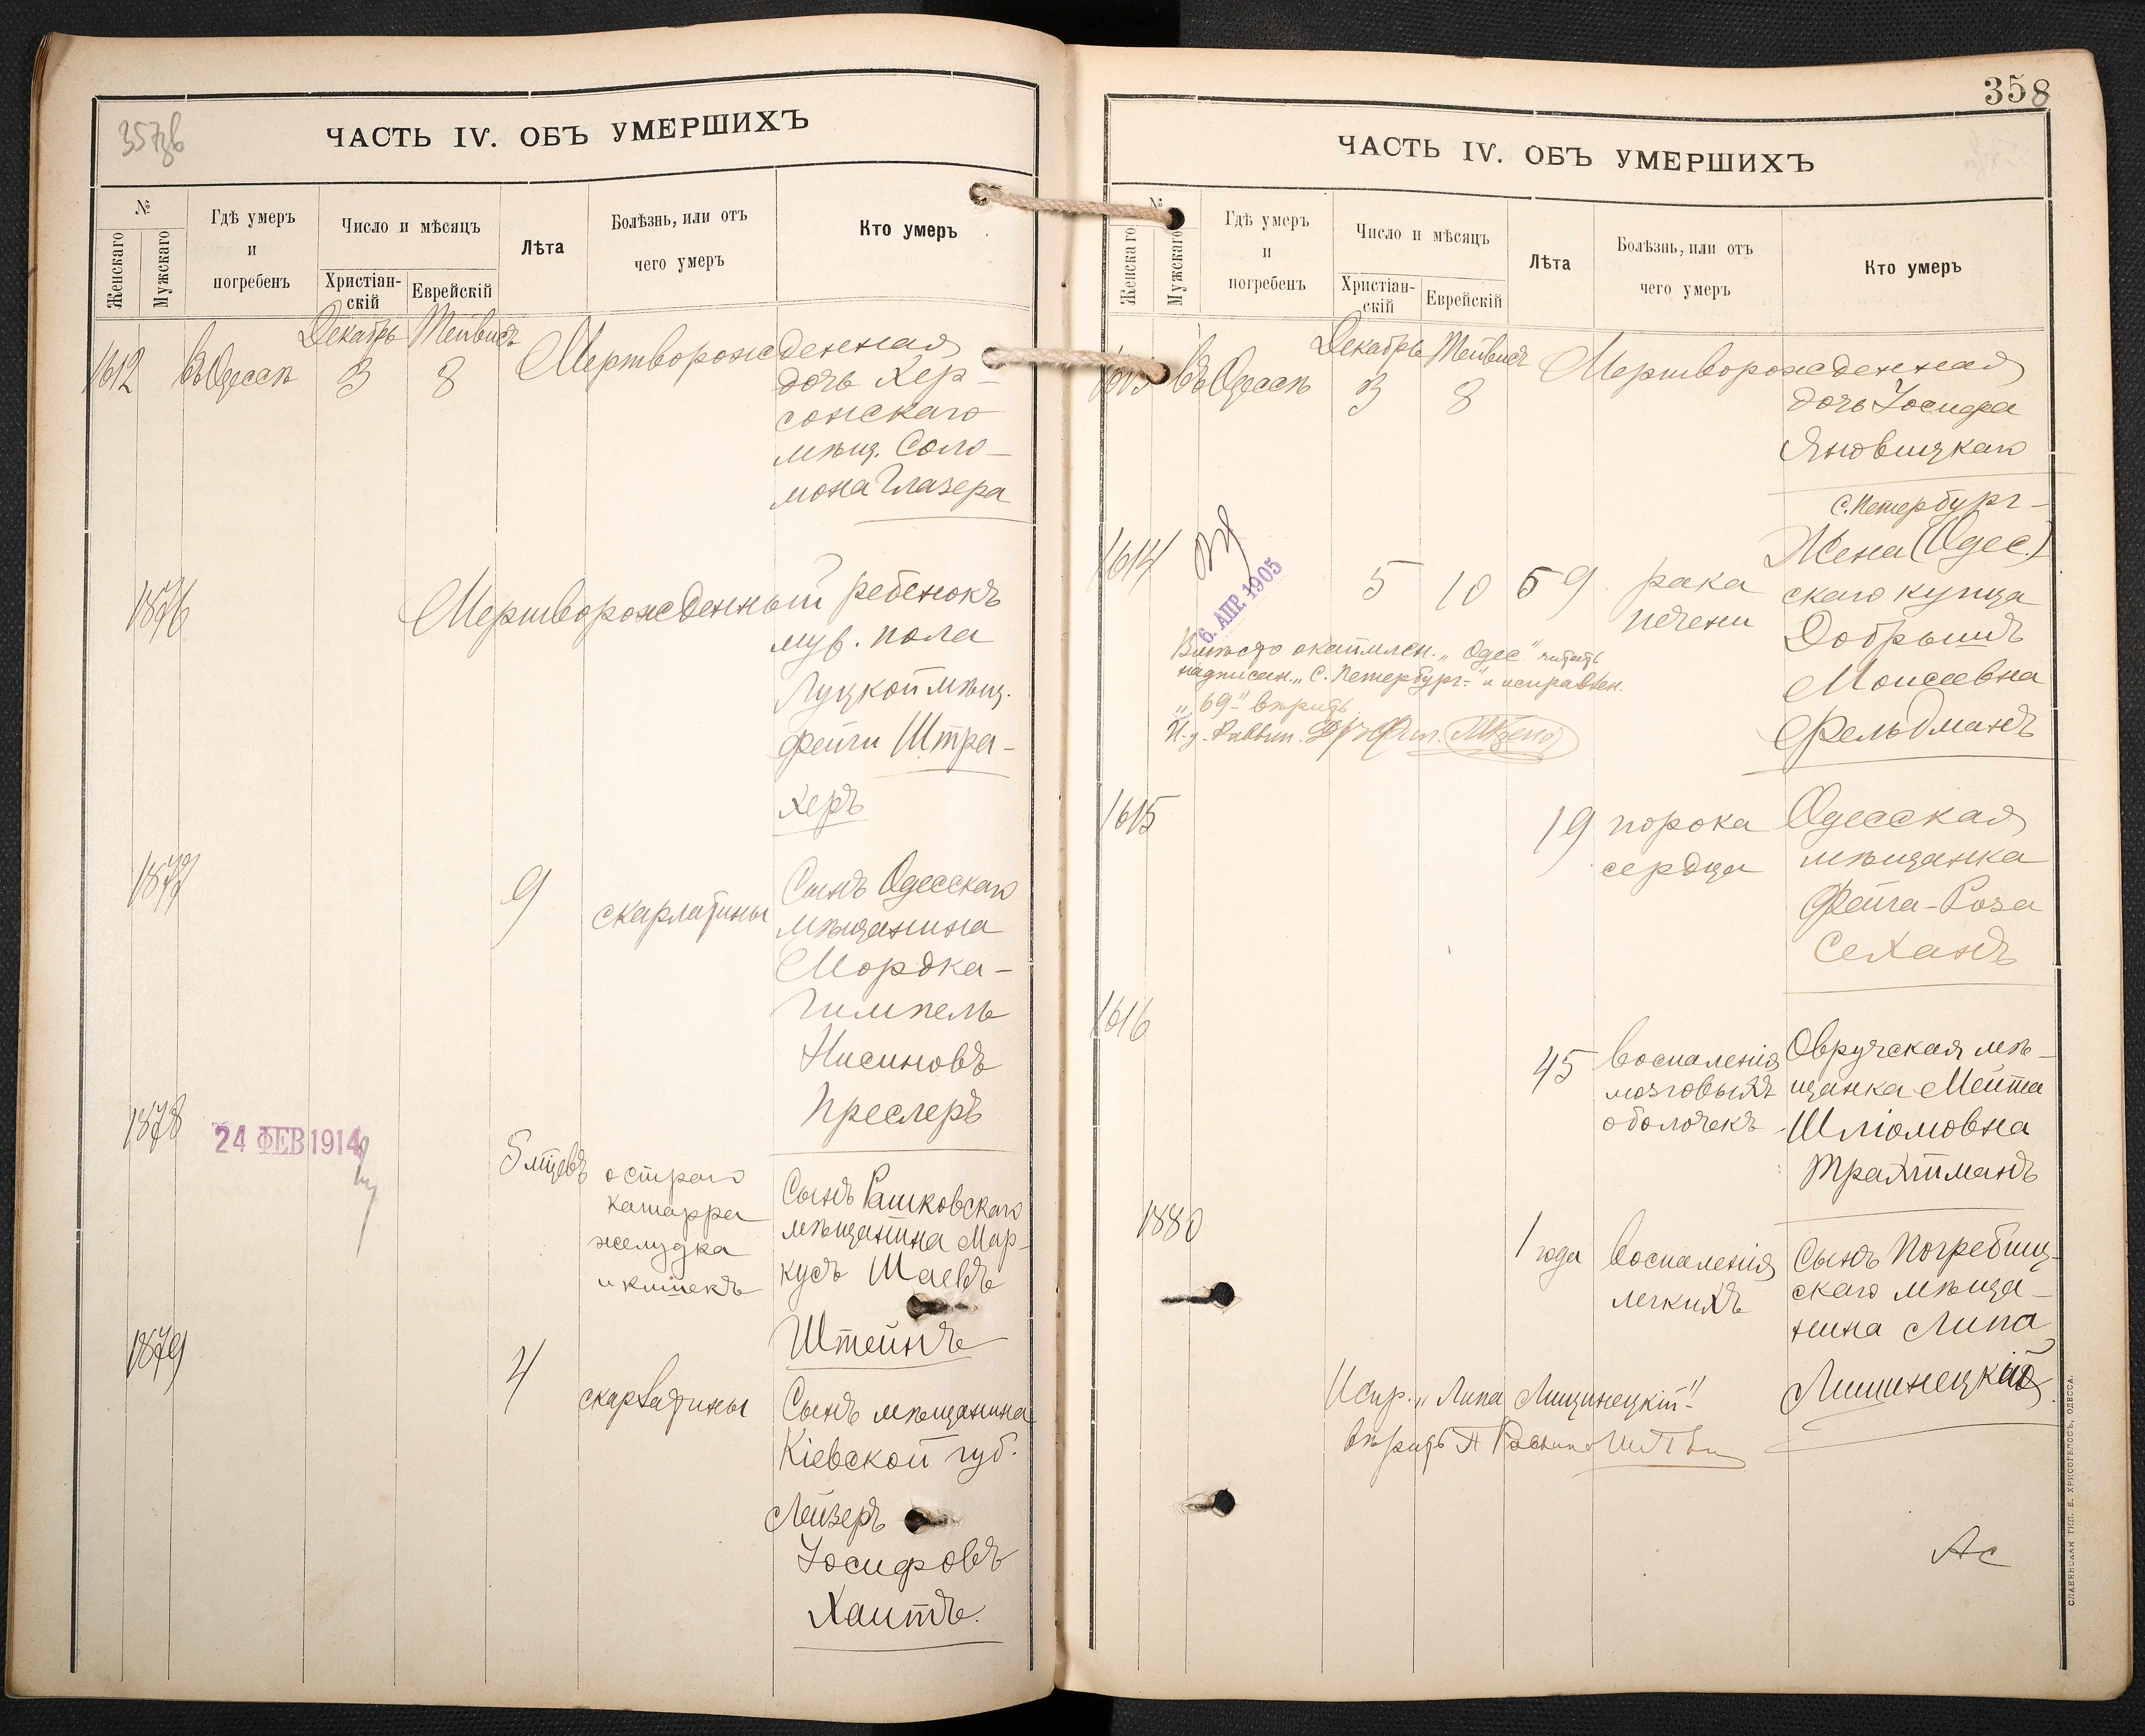 357об
ЧАСТЬ IV. ОБЪ УМЕРШИХЪ
№
Женскаго
Мужскаго
Гдѣ умеръ
и
погребенъ
Число и мѣсяцъ
Христіан-
скій
Еврейскій
Лѣта
Болѣзнь, или отъ
чего умеръ
Кто умеръ
Декабрь Тейвисъ
1612 Въ Одессѣ 3 8 Мертворожденная
дочь Хер-
сонскаго
мѣщ. Соло-
мона Глазера
1876 Мертворожденный ребенокъ
муж. пола
Луцкой мѣщ.
Фейги Штра-
херъ
1877 9 скарлатины Сынъ Одесскаго
мѣщанина
Мордка-
Гимпель
Нисиновъ
Преслеръ
1878 24 ФЕВ 1914
5 мцевъ остраго
катарра
желудка
и кишекъ
Сынъ Рашковскаго
мѣщанина Мар-
кусъ Шаевъ
Штейнъ
1879 4 скарлатины Сынъ мѣщанина
Кіевской губ.
Лейзеръ
Іосифовъ
Хаитъ.
358
ЧАСТЬ IV. ОБЪ УМЕРШИХЪ
№
Женскаго
Мужскаго
Гдѣ умеръ
и
погребенъ
Число и мѣсяцъ
Христіан-
скій
Еврейскій
Лѣта
Болѣзнь, или отъ
чего умеръ
Кто умеръ
Декабрь Тейвисъ
1613 Въ Одессѣ 3 8 Мертворожденная
дочь Іосифа
Яновицкаго
С.Петербург-
1614 5 10 59 рака
печени
Жена (Одес.)
скаго купца
Добрышъ
Моисеевна
Фельдманъ
6. АПР. 1905
Вмѣсто окаймлен. „Одес." читать
надписан. „С. Петербург-" и исправлен.
„69" вѣрить
И. д. Раввин.
1615 19 порока
сердца
Одесская
мѣщанка
Фейга-Роза
Сеханъ
1616 45 воспаленія
мозговыхъ
оболочекъ
Овручская мѣ-
щанка Мейта
Шліомовна
Трахтманъ
1880 1 года воспаленія
легкихъ
Сынъ Погребищ-
скаго мѣща-
нина Липа
Лишинецкій
Испр. „Липа Лищинецкій"
вѣрить
Ас
СЛАВЯНСКАЯ ТИП. Е. ХРИСОГЕЛОСЪ, ОДЕССА.